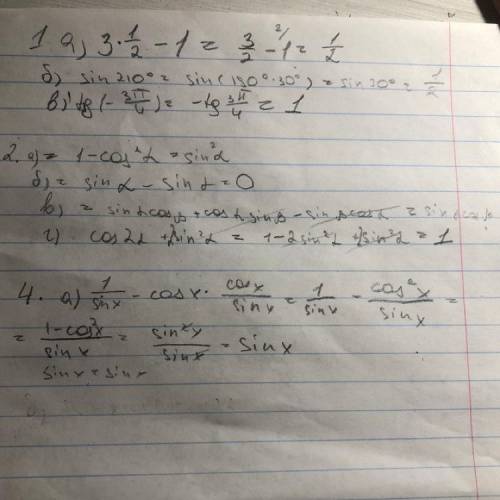 1 а) 3·1/2 - 1 = 3/2 - 1 = 1/2
б) sin 210° = sin(180°·30°) = sin 30° = 1/2
в) tg(-3π/4) = -tg 3π/4 = 1
2. а) = 1-cos²α = sin²α
б) = sin α - sin α = 0
в) = sin α cos β + cos α sin β - sin β cos α = sin α cos β
г) cos2α + 2sin²α = 1-2sin²α + 2sin²α = 1
4. а) 1/sin x - cos x · cos x/sin x = 1/sin x - cos²x/sin x =
= 1-cos²x/sin x = sin²x/sin x = sin x
sin x = sin x